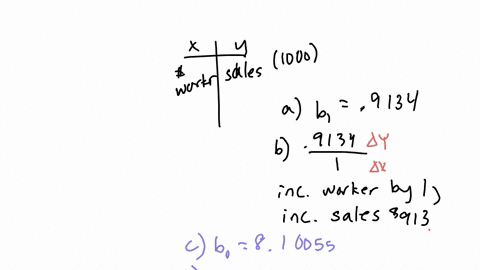 x y
# workr sales (1000)
a) b₁ = .9134
b) .9134 ΔY
1 ΔX
inc. worker by 1,
inc. sales $913
c) b₀ = 8.10055